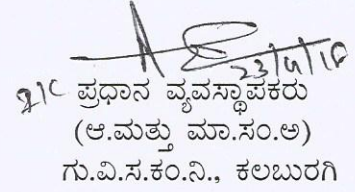 23/4/18
I/C ಪ್ರಧಾನ ವ್ಯವಸ್ಥಾಪಕರು
(ಆ.ಮತ್ತು ಮಾ.ಸಂ.ಅ)
ಗು.ವಿ.ಸ.ಕಂ.ನಿ., ಕಲಬುರಗಿ